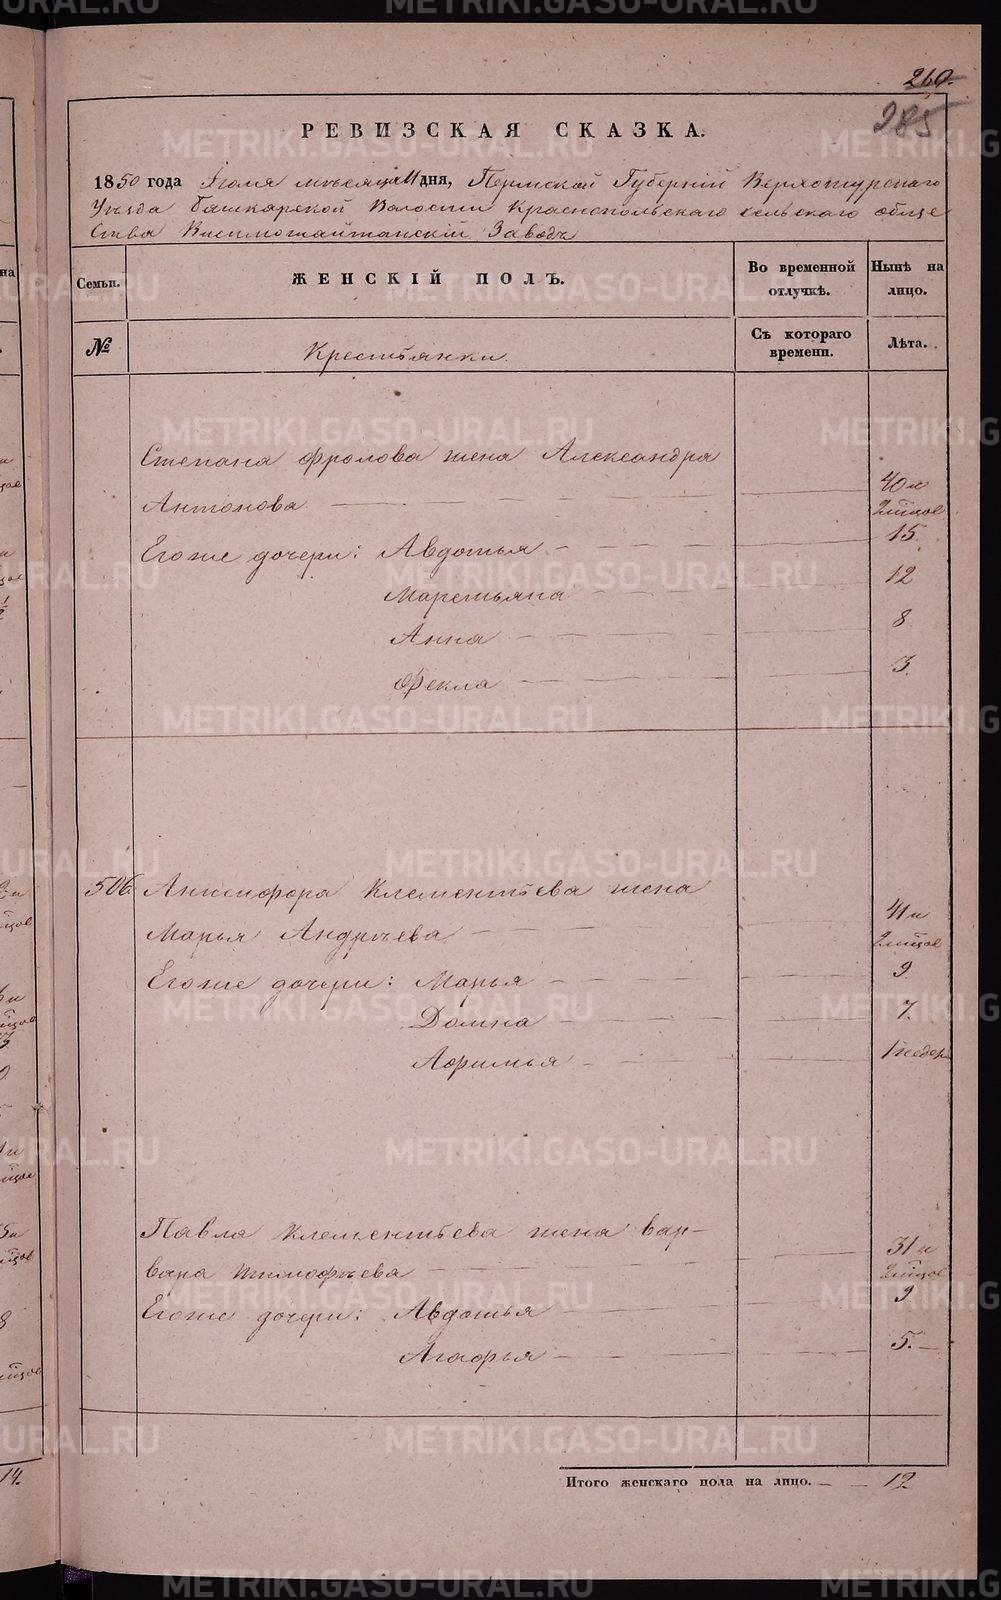 260.
285
РЕВИЗСКАЯ СКАЗКА.
1850 года Июля месяца 11 дня, Пермской Губернии Верхотурскаго
Уѣзда Башкарской Волости Краснопольскаго сельскаго обще
ства Висимошайтанскій Заводъ
Семьи. ЖЕНСКІЙ ПОЛЪ. Во временной отлучкѣ. Нынѣ на лицо.
№ Крестьянки. Съ котораго времени. Лѣта.
Степана Фролова жена Александра
Антонова 40 и
2 мѣсцов
Его же дочери: Авдотья 15.
Маремьяна 12
Анна 8
Фекла 3.
506. Никифора Клементьева жена
Марья Андрѣева 41 и
2 мѣсцов
Его же дочери: Марья 9
Домна 7.
Афимья 1 недел
Павла Клементьева жена Вар-
вара Тимофѣева 31 и
2 мѣсцов
Его же дочери: Авдотья 9
Агафья 5.
Итого женскаго пола на лицо. 12
METRIKI.GASO-URAL.RU